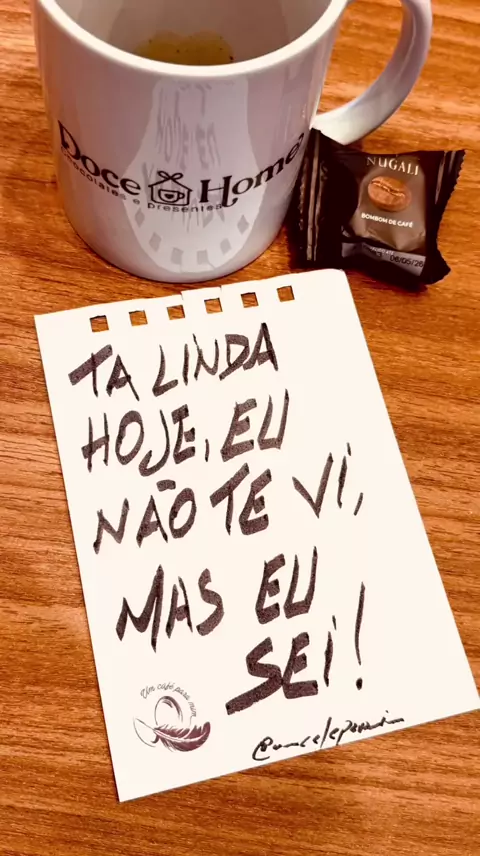 Doce Home
chocolates e presentes
NUGALI
BOMBOM DE CAFÉ
TA LINDA
HOJE, EU
NÃO TE VI,
MAS EU
SEI!
Um café para mim